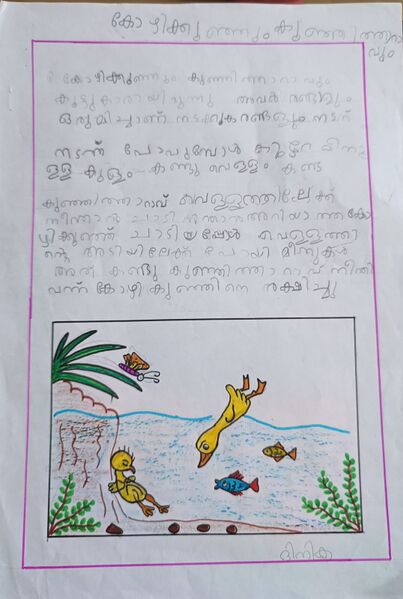 കോഴിക്കുഞ്ഞും കുഞ്ഞിത്താറാ
വും
കോഴിക്കുഞ്ഞും കുഞ്ഞിത്താറാവും
കൂട്ടുകാരായിരുന്നു അവർ രണ്ടാളും
ഒരുമിച്ചാണ് നടപ്പു
നടന്ന് പോവുമ്പോൾ
ള്ള കുളം കണ്ടു വെള്ളം കണ്ട
കുഞ്ഞിത്താറാവ് വെള്ളത്തിലേക്ക്
നീന്താൻ ചാടി നീന്താനറിയാത്ത കോ
ഴിക്കുഞ്ഞ് ചാടിയപ്പോൾ വെള്ളത്തി
ന്റെ അടിയിലേക്ക് പോയി മീനുകൾ
അത് കണ്ടു കുഞ്ഞിത്താറാവ് നീന്തി
വന്ന് കോഴികുഞ്ഞിനെ രക്ഷിച്ചു
ദിനിക